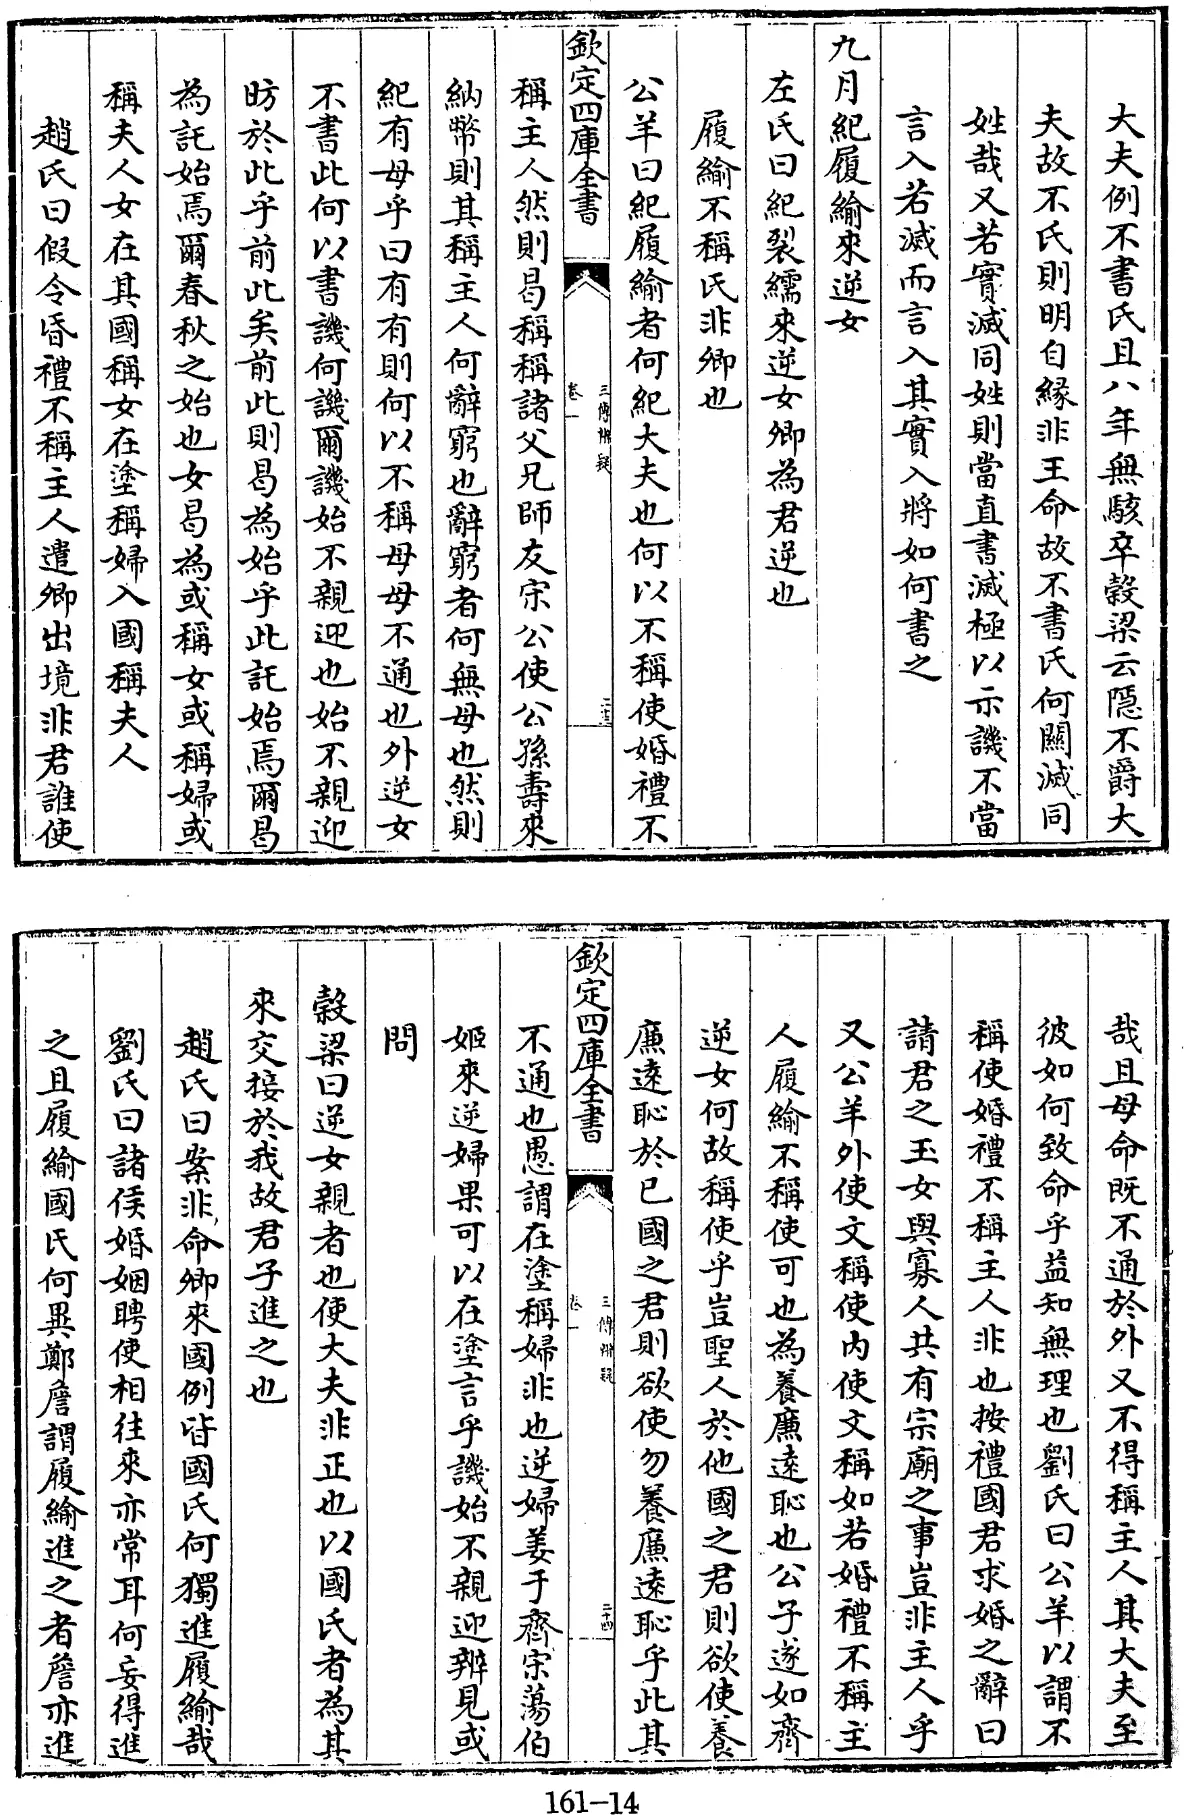 大夫例不書氏且八年無駭卒穀梁云隠不爵大
夫故不氏則明自縁非王命故不書氏何關滅同
姓哉又若實滅同姓則當直書滅極以示譏不當
言入若滅而言入其實入將如何書之
九月紀履緰來逆女
左氏曰紀裂繻來逆女卿為君逆也
履緰不稱氏非卿也
公羊曰紀履緰者何紀大夫也何以不稱使婚禮不
欽定四庫全書
三傳辨疑
卷一
二十三
稱主人然則曷稱稱諸父兄師友宋公使公孫壽來
納幣則其稱主人何辭窮也辭窮者何無母也然則
紀有母乎曰有有則何以不稱母母不通也外逆女
不書此何以書譏何譏爾譏始不親迎也始不親迎
昉於此乎前此矣前此則曷為始乎此託始焉爾曷
為託始焉爾春秋之始也女曷為或稱女或稱婦或
稱夫人女在其國稱女在塗稱婦入國稱夫人
趙氏曰假令昏禮不稱主人遣卿出境非君誰使
哉且母命既不通於外又不得稱主人其大夫至
彼如何致命乎益知無理也劉氏曰公羊以謂不
稱使婚禮不稱主人非也按禮國君求婚之辭曰
請君之玉女與寡人共有宗廟之事豈非主人乎
又公羊外使文稱使内使文稱如若婚禮不稱主
人履緰不稱使可也為養廉遠恥也公子遂如齊
逆女何故稱使乎豈聖人於他國之君則欲使養
廉遠恥於已國之君則欲使勿養廉遠恥乎此其
欽定四庫全書
三傳辨疑
卷一
二十四
不通也愚謂在塗稱婦非也逆婦姜于齊宋蕩伯
姬來逆婦果可以在塗言乎譏始不親迎辨見或
問
穀梁曰逆女親者也使大夫非正也以國氏者為其
來交接於我故君子進之也
趙氏曰案非命卿來國例皆國氏何獨進履緰哉
劉氏曰諸侯婚姻聘使相往來亦常耳何妄得進
之且履緰國氏何異鄭詹謂履緰進之者詹亦進
161-14